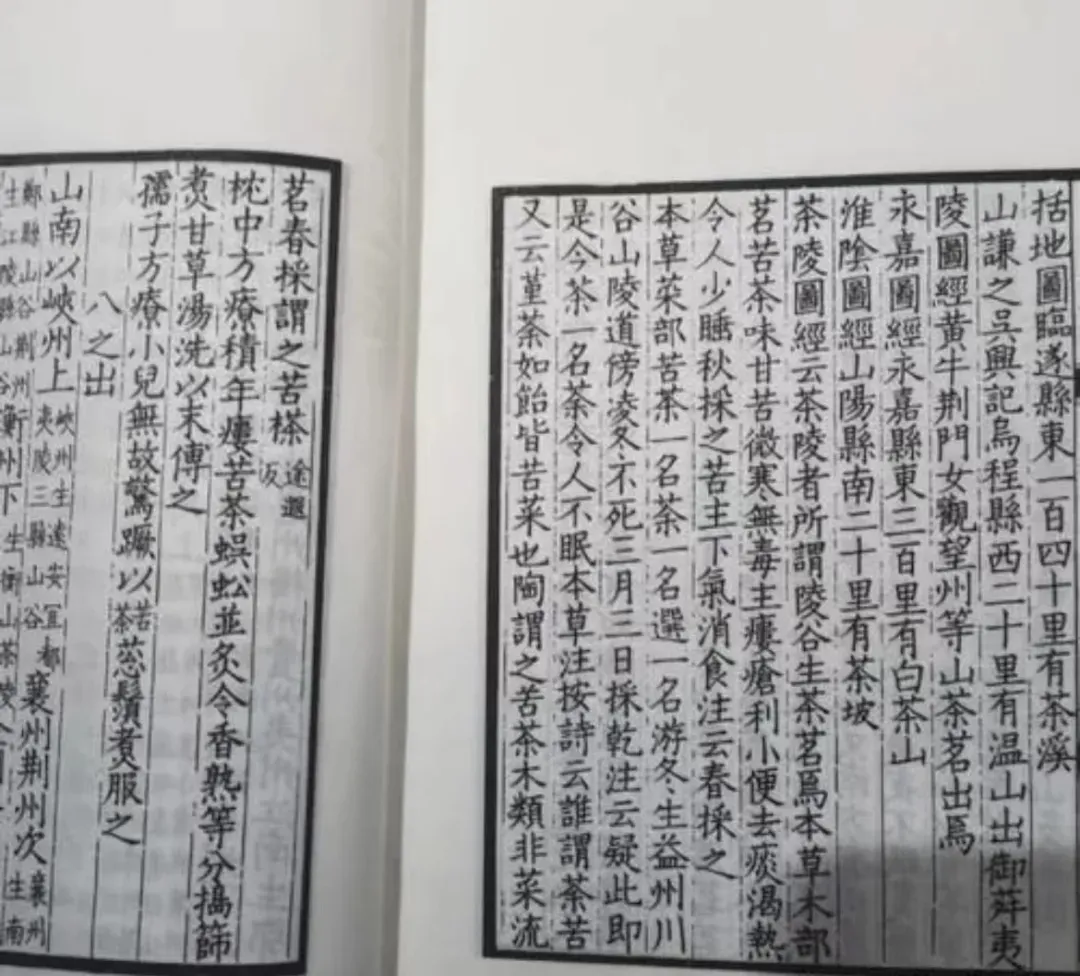 括地圖臨遂縣東一百四十里有茶溪
山謙之吳興記烏程縣西二十里有温山出御荈夷
陵圖經黄牛荆門女觀望州等山茶茗出焉
永嘉圖經永嘉縣東三百里有白茶山
淮陰圖經山陽縣南二十里有茶坡
茶陵圖經云茶陵者所謂陵谷生茶茗焉本草木部
茗苦茶味甘苦微寒無毒主瘻瘡利小便去痰渴熱
令人少睡秋採之苦主下氣消食注云春採之
本草菜部苦茶一名茶一名選一名游冬生益州川
谷山陵道傍凌冬不死三月三日採乾注云疑此即
是今茶一名荼令人不眠本草注按詩云誰謂荼苦
又云堇荼如飴皆苦菜也陶謂之苦茶木類非菜流
茗春採謂之苦搽途遐反
枕中方療積年瘻苦茶蜈蚣並炙令香熟等分搗篩
煑甘草湯洗以末傅之
孺子方療小兒無故驚蹶以苦茶葱鬚煑服之
八之出
山南以峽州上峽州生遠安宜都夷陵三縣山谷襄州荆州次襄州生南
鄭縣山谷荆州生江陵縣山谷衡州下生衡山茶陵